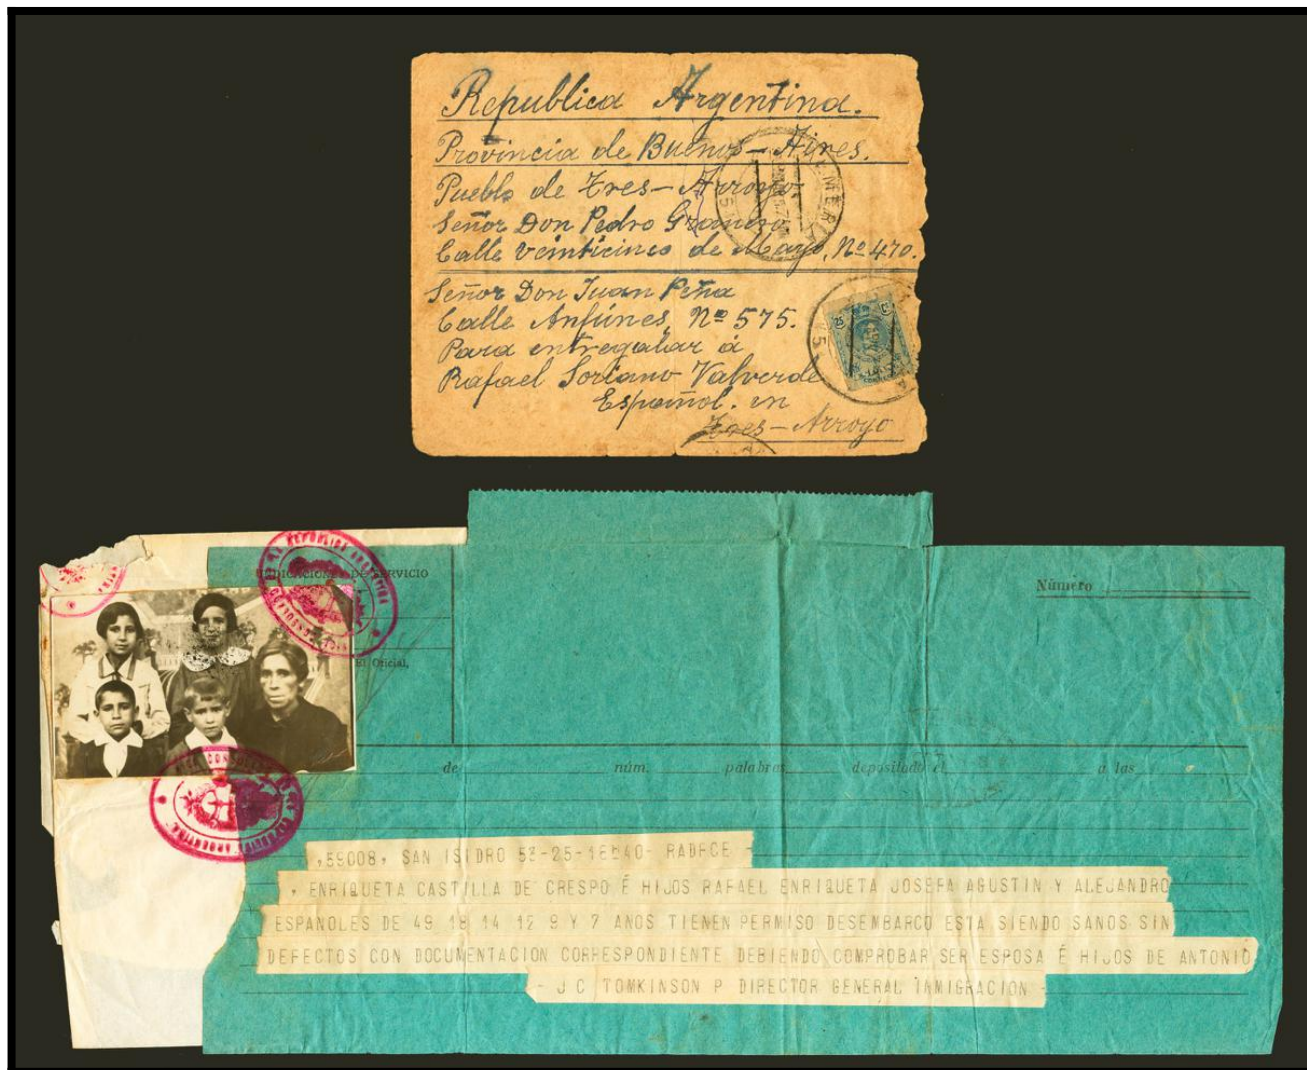 Republica Argentina.
Provincia de Buenos-Aires.
Pueblo de Tres-Arroyo
Señor Don Pedro
Calle Veinticinco de Mayo, Nº 470.
Señor Don Juan Peña
Calle Anfúnes, Nº 575.
Para entregalar á
Rafael Soriano Valverde
Español. en
Tres-Arroyo
INDICACIONES DE SERVICIO
El Oficial,
Número
de núm. palabras depositado el a las
REPUBLICA ARGENTINA
VICE CONSULADO
REPUBLICA ARGENTINA
,59008, SAN ISIDRO 53-25-16040- RADECE -
, ENRIQUETA CASTILLA DE CRESPO É HIJOS RAFAEL ENRIQUETA JOSEFA AGUSTIN Y ALEJANDRO
ESPAÑOLES DE 49 18 14 12 9 Y 7 ANOS TIENEN PERMISO DESEMBARCO ESTA SIENDO SANOS SIN
DEFECTOS CON DOCUMENTACION CORRESPONDIENTE DEBIENDO COMPROBAR SER ESPOSA É HIJOS DE ANTONIO
- J C TOMKINSON P DIRECTOR GENERAL INMIGRACION -